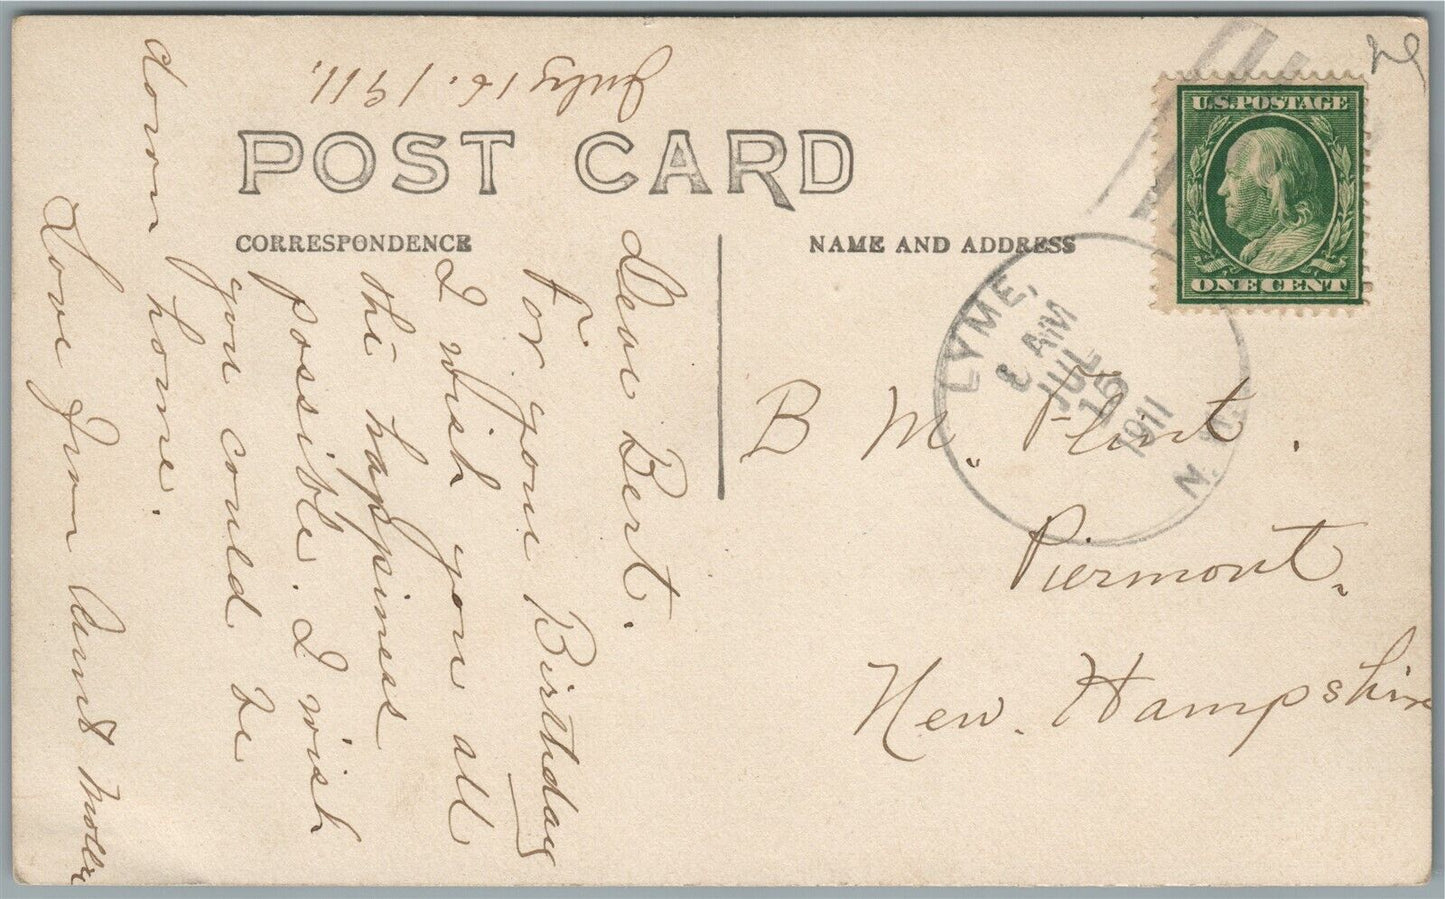 POST CARD
CORRESPONDENCE
NAME AND ADDRESS
U.S.POSTAGE
ONE CENT
LYME,
AM
JUL
15
1911
N.H.
B. M. Flint.
Piermont,
New. Hampshire
July 16. 1911.
Dear Bert.
For your Birthday
I wish you all
the happiness
possible. I wish
you could be
down home.
Love from Aunt Molly